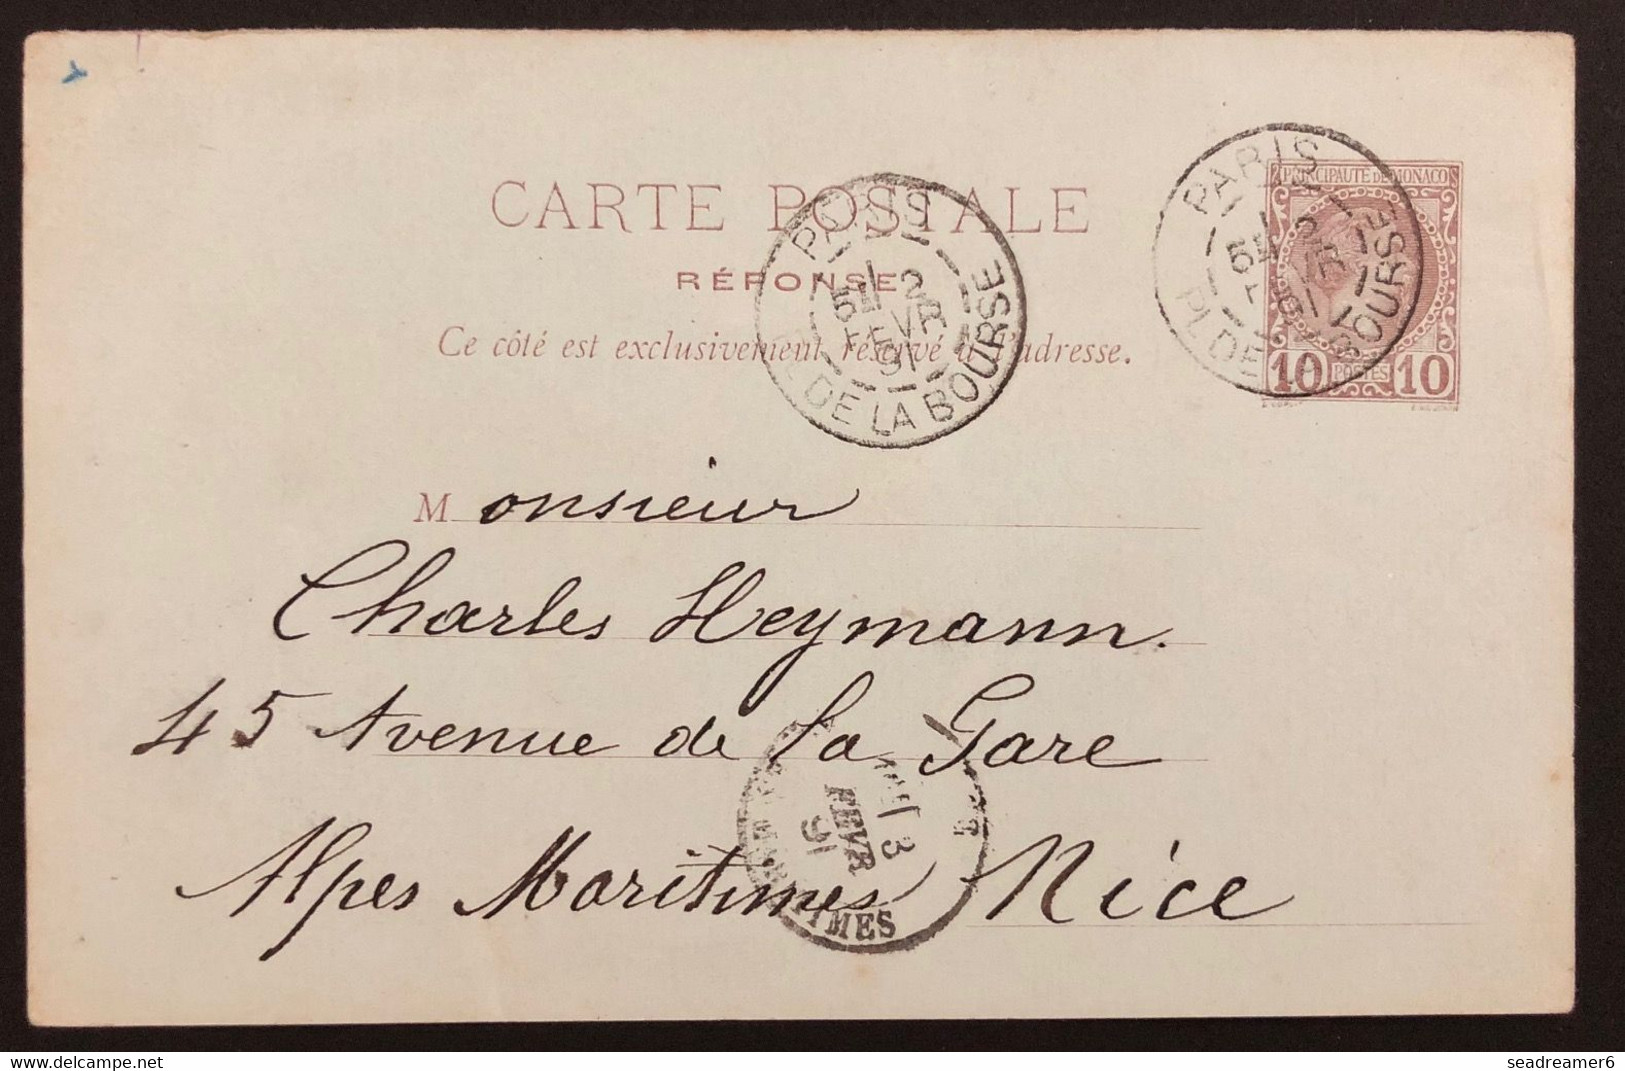 CARTE POSTALE
RÉPONSE
Ce côté est exclusivement réservé à l'adresse.
PRINCIPAUTÉ DE MONACO
10 POSTES 10
PARIS
5E 2
FEVR
91
PL. DE LA BOURSE
PARIS
5E 2
FEVR
91
PL. DE LA BOURSE
Monsieur
Charles Heymann.
45 Avenue de la Gare
Alpes Maritimes Nice
3
FEVR
91
www.delcampe.net
seadreamer6